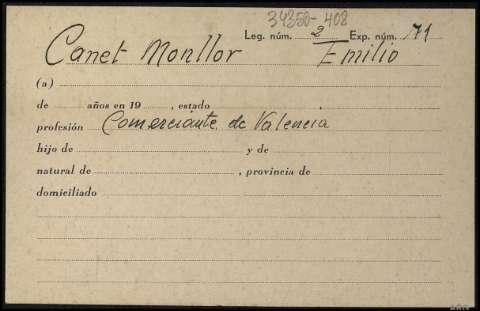 34250-408
Leg. núm. 2 Exp. núm. 71
Canet Monllor Emilio
(a)
de años en 19 , estado
profesión Comerciante de Valencia
hijo de y de
natural de , provincia de
domiciliado